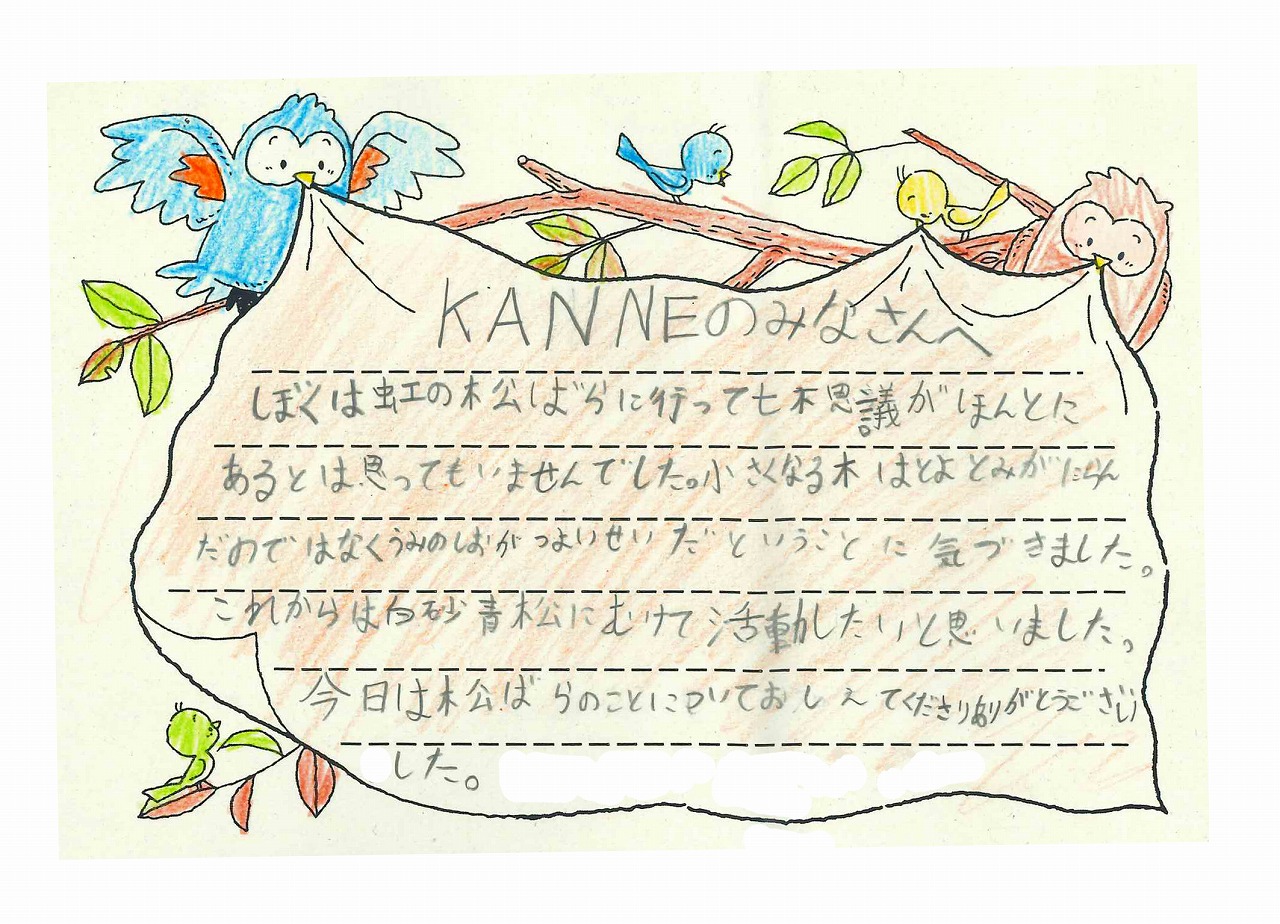 KANNEのみなさんへ
ぼくは虹の松ばらに行って七不思議がほんとに
あるとは思ってもいませんでした。小さくなる木はとよとみがにらん
だのではなくうみのしおがつよいせいだということに気づきました。
これからは白砂青松にむけて活動したいと思いました。
今日は松ばらのことについておしえてくださりありがとうござい
した。